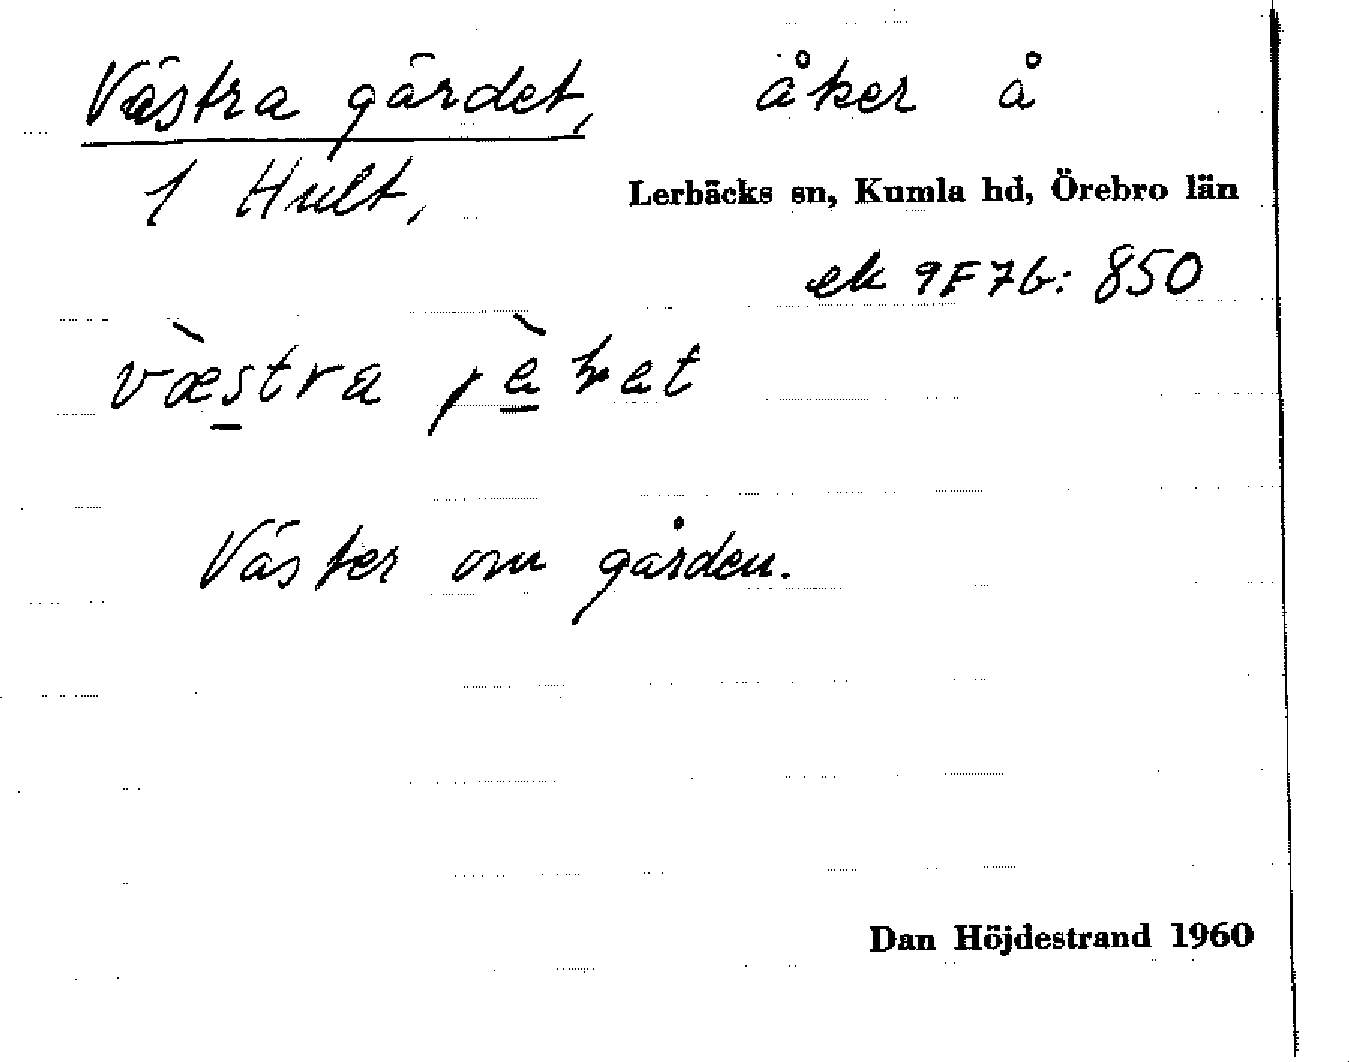 Västra gärdet, åker å
1 Hult, Lerbäcks sn, Kumla hd, Örebro län
ek 9F7b: 850
væ̀stra
Väster om gården.
Dan Höjdestrand 1960